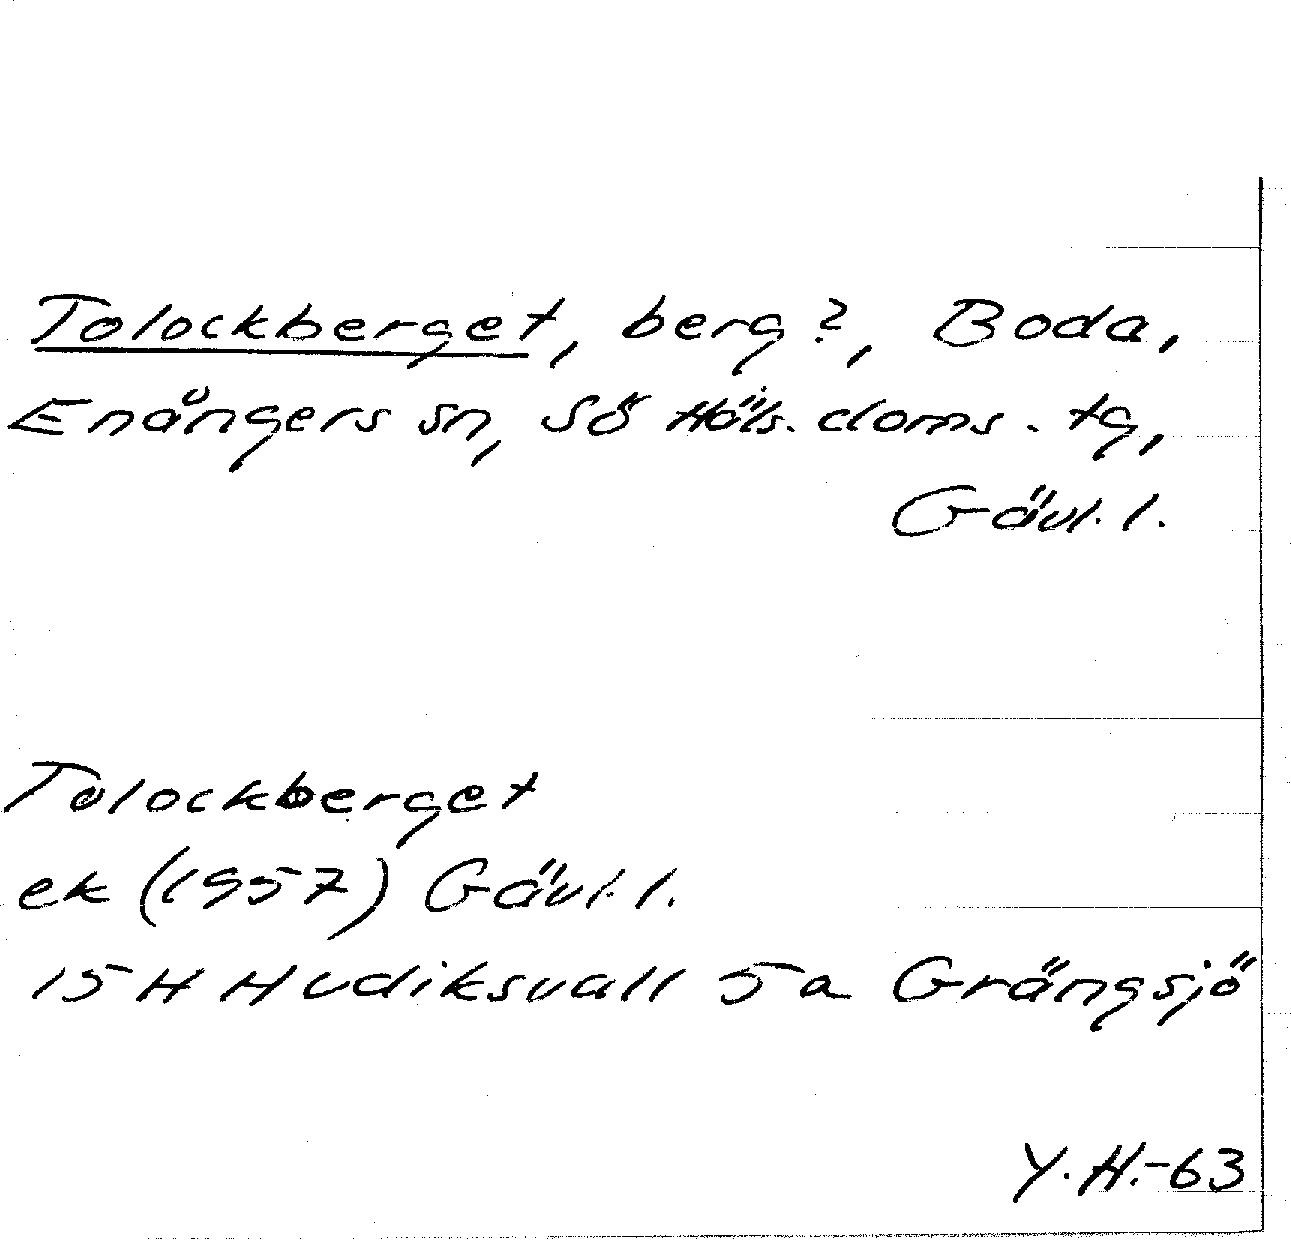 Tolockberget, berg?, Boda,
Enångers sn, Sö Häls. doms. tg,
Gävl. l.
Tolockberget
ek (1957) Gävl. l.
15 H Hudiksvall 5 a Grängsjö
Y. H. -63